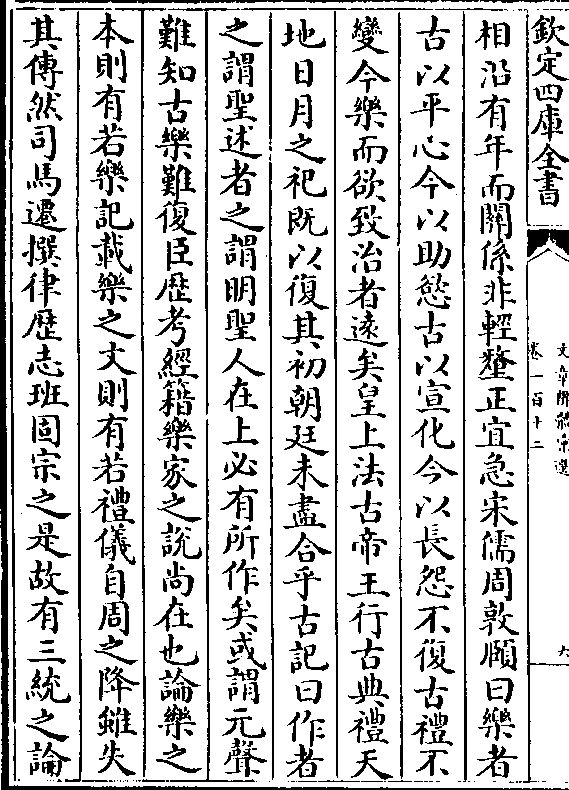 欽定四庫全書
文章辨體彙選
卷一百十二
六
相沿有年而關係非輕釐正宜急宋儒周敦頤曰樂者
古以平心今以助慾古以宣化今以長怨不復古禮不
變今樂而欲致治者遠矣皇上法古帝王行古典禮天
地日月之祀既以復其初朝廷未盡合乎古記曰作者
之謂聖述者之謂明聖人在上必有所作矣或謂元聲
難知古樂難復臣歴考經籍樂家之說尚在也論樂之
本則有若樂記載樂之文則有若禮儀自周之降雖失
其傳然司馬遷撰律歴志班固宗之是故有三統之論